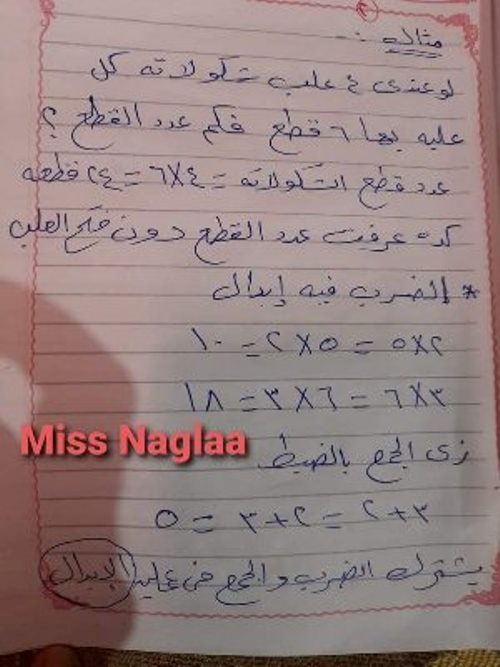 مثال :-
لو عندى ٤ علب شكولاته كل
علبه بها ٦ قطع فكم عدد القطع ؟
عدد قطع الشكولاته = ٤×٦ = ٢٤ قطعه
كده عرفت عدد القطع دون فتح العلب
* الضرب فيه إبدال
٢×٥ = ٥×٢ = ١٠
٣×٦ = ٦×٣ = ١٨
Miss Naglaa
زى الجمع بالضبط
٣+٢ = ٢+٣ = ٥
يشترك الضرب والجمع فى عملية الإبدال